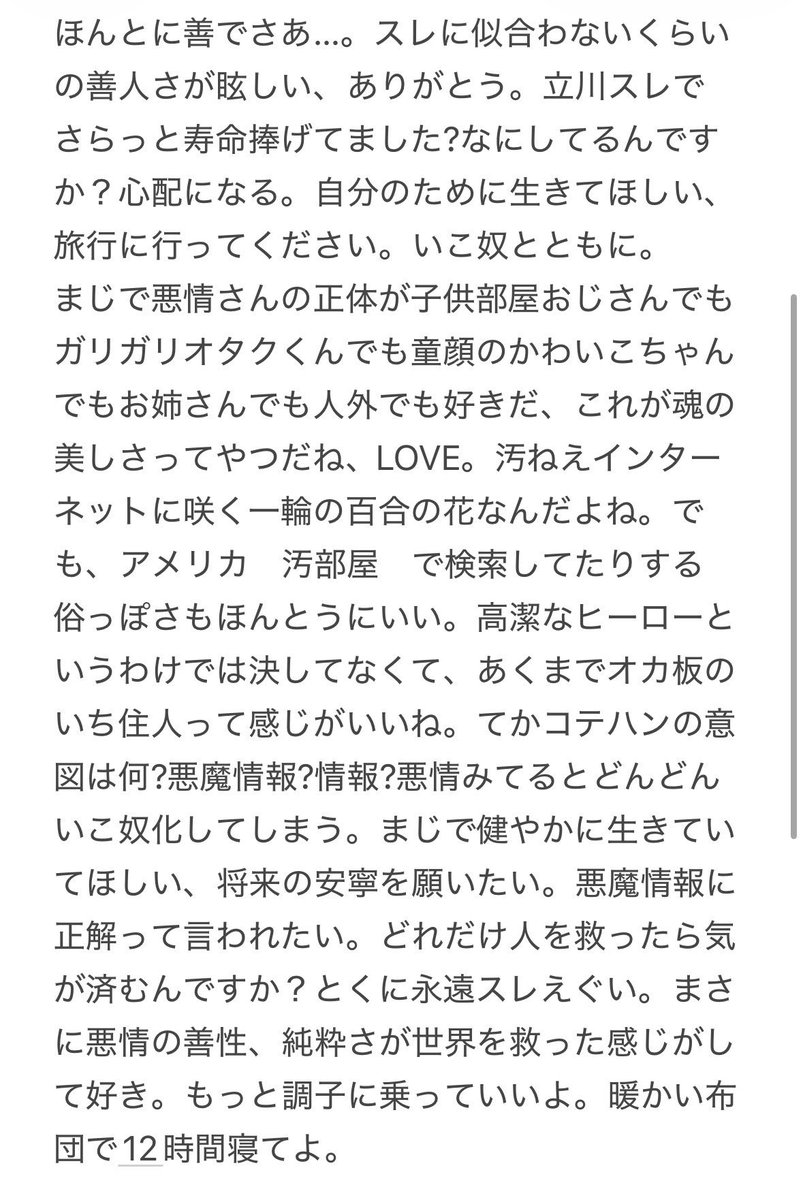 ほんとに善でさあ…。スレに似合わないくらい
の善人さが眩しい、ありがとう。立川スレで
さらっと寿命捧げてました?なにしてるんです
か？心配になる。自分のために生きてほしい、
旅行に行ってください。いこ奴とともに。
まじで悪情さんの正体が子供部屋おじさんでも
ガリガリオタクくんでも童顔のかわいこちゃん
でもお姉さんでも人外でも好きだ、これが魂の
美しさってやつだね、LOVE。汚ねえインター
ネットに咲く一輪の百合の花なんだよね。で
も、アメリカ　汚部屋　で検索してたりする
俗っぽさもほんとうにいい。高潔なヒーローと
いうわけでは決してなくて、あくまでオカ板の
いち住人って感じがいいね。てかコテハンの意
図は何?悪魔情報?情報?悪情みてるとどんどん
いこ奴化してしまう。まじで健やかに生きてい
てほしい、将来の安寧を願いたい。悪魔情報に
正解って言われたい。どれだけ人を救ったら気
が済むんですか？とくに永遠スレえぐい。まさ
に悪情の善性、純粋さが世界を救った感じがし
て好き。もっと調子に乗っていいよ。暖かい布
団で12時間寝てよ。